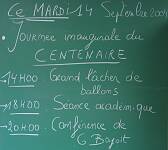 Ce MARDI 14 Septembre 2004
• Journée inaugurale du
CENTENAIRE
→ 14H00 Grand lâcher de
ballons
→ 18H00 Séance académique
→ 20H00 Conférence de
G. Bajoit